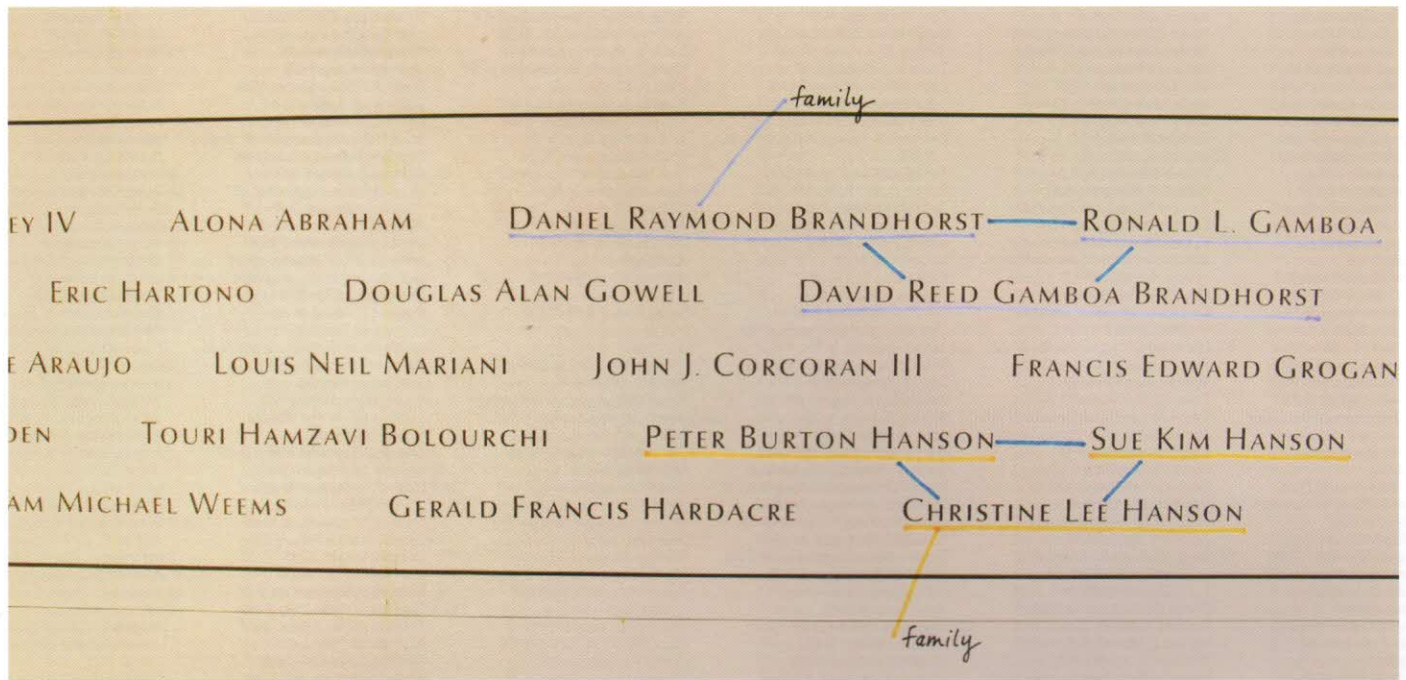 family
EY IV ALONA ABRAHAM DANIEL RAYMOND BRANDHORST RONALD L. GAMBOA
ERIC HARTONO DOUGLAS ALAN GOWELL DAVID REED GAMBOA BRANDHORST
E ARAUJO LOUIS NEIL MARIANI JOHN J. CORCORAN III FRANCIS EDWARD GROGAN
DEN TOURI HAMZAVI BOLOURCHI PETER BURTON HANSON SUE KIM HANSON
AM MICHAEL WEEMS GERALD FRANCIS HARDACRE CHRISTINE LEE HANSON
family